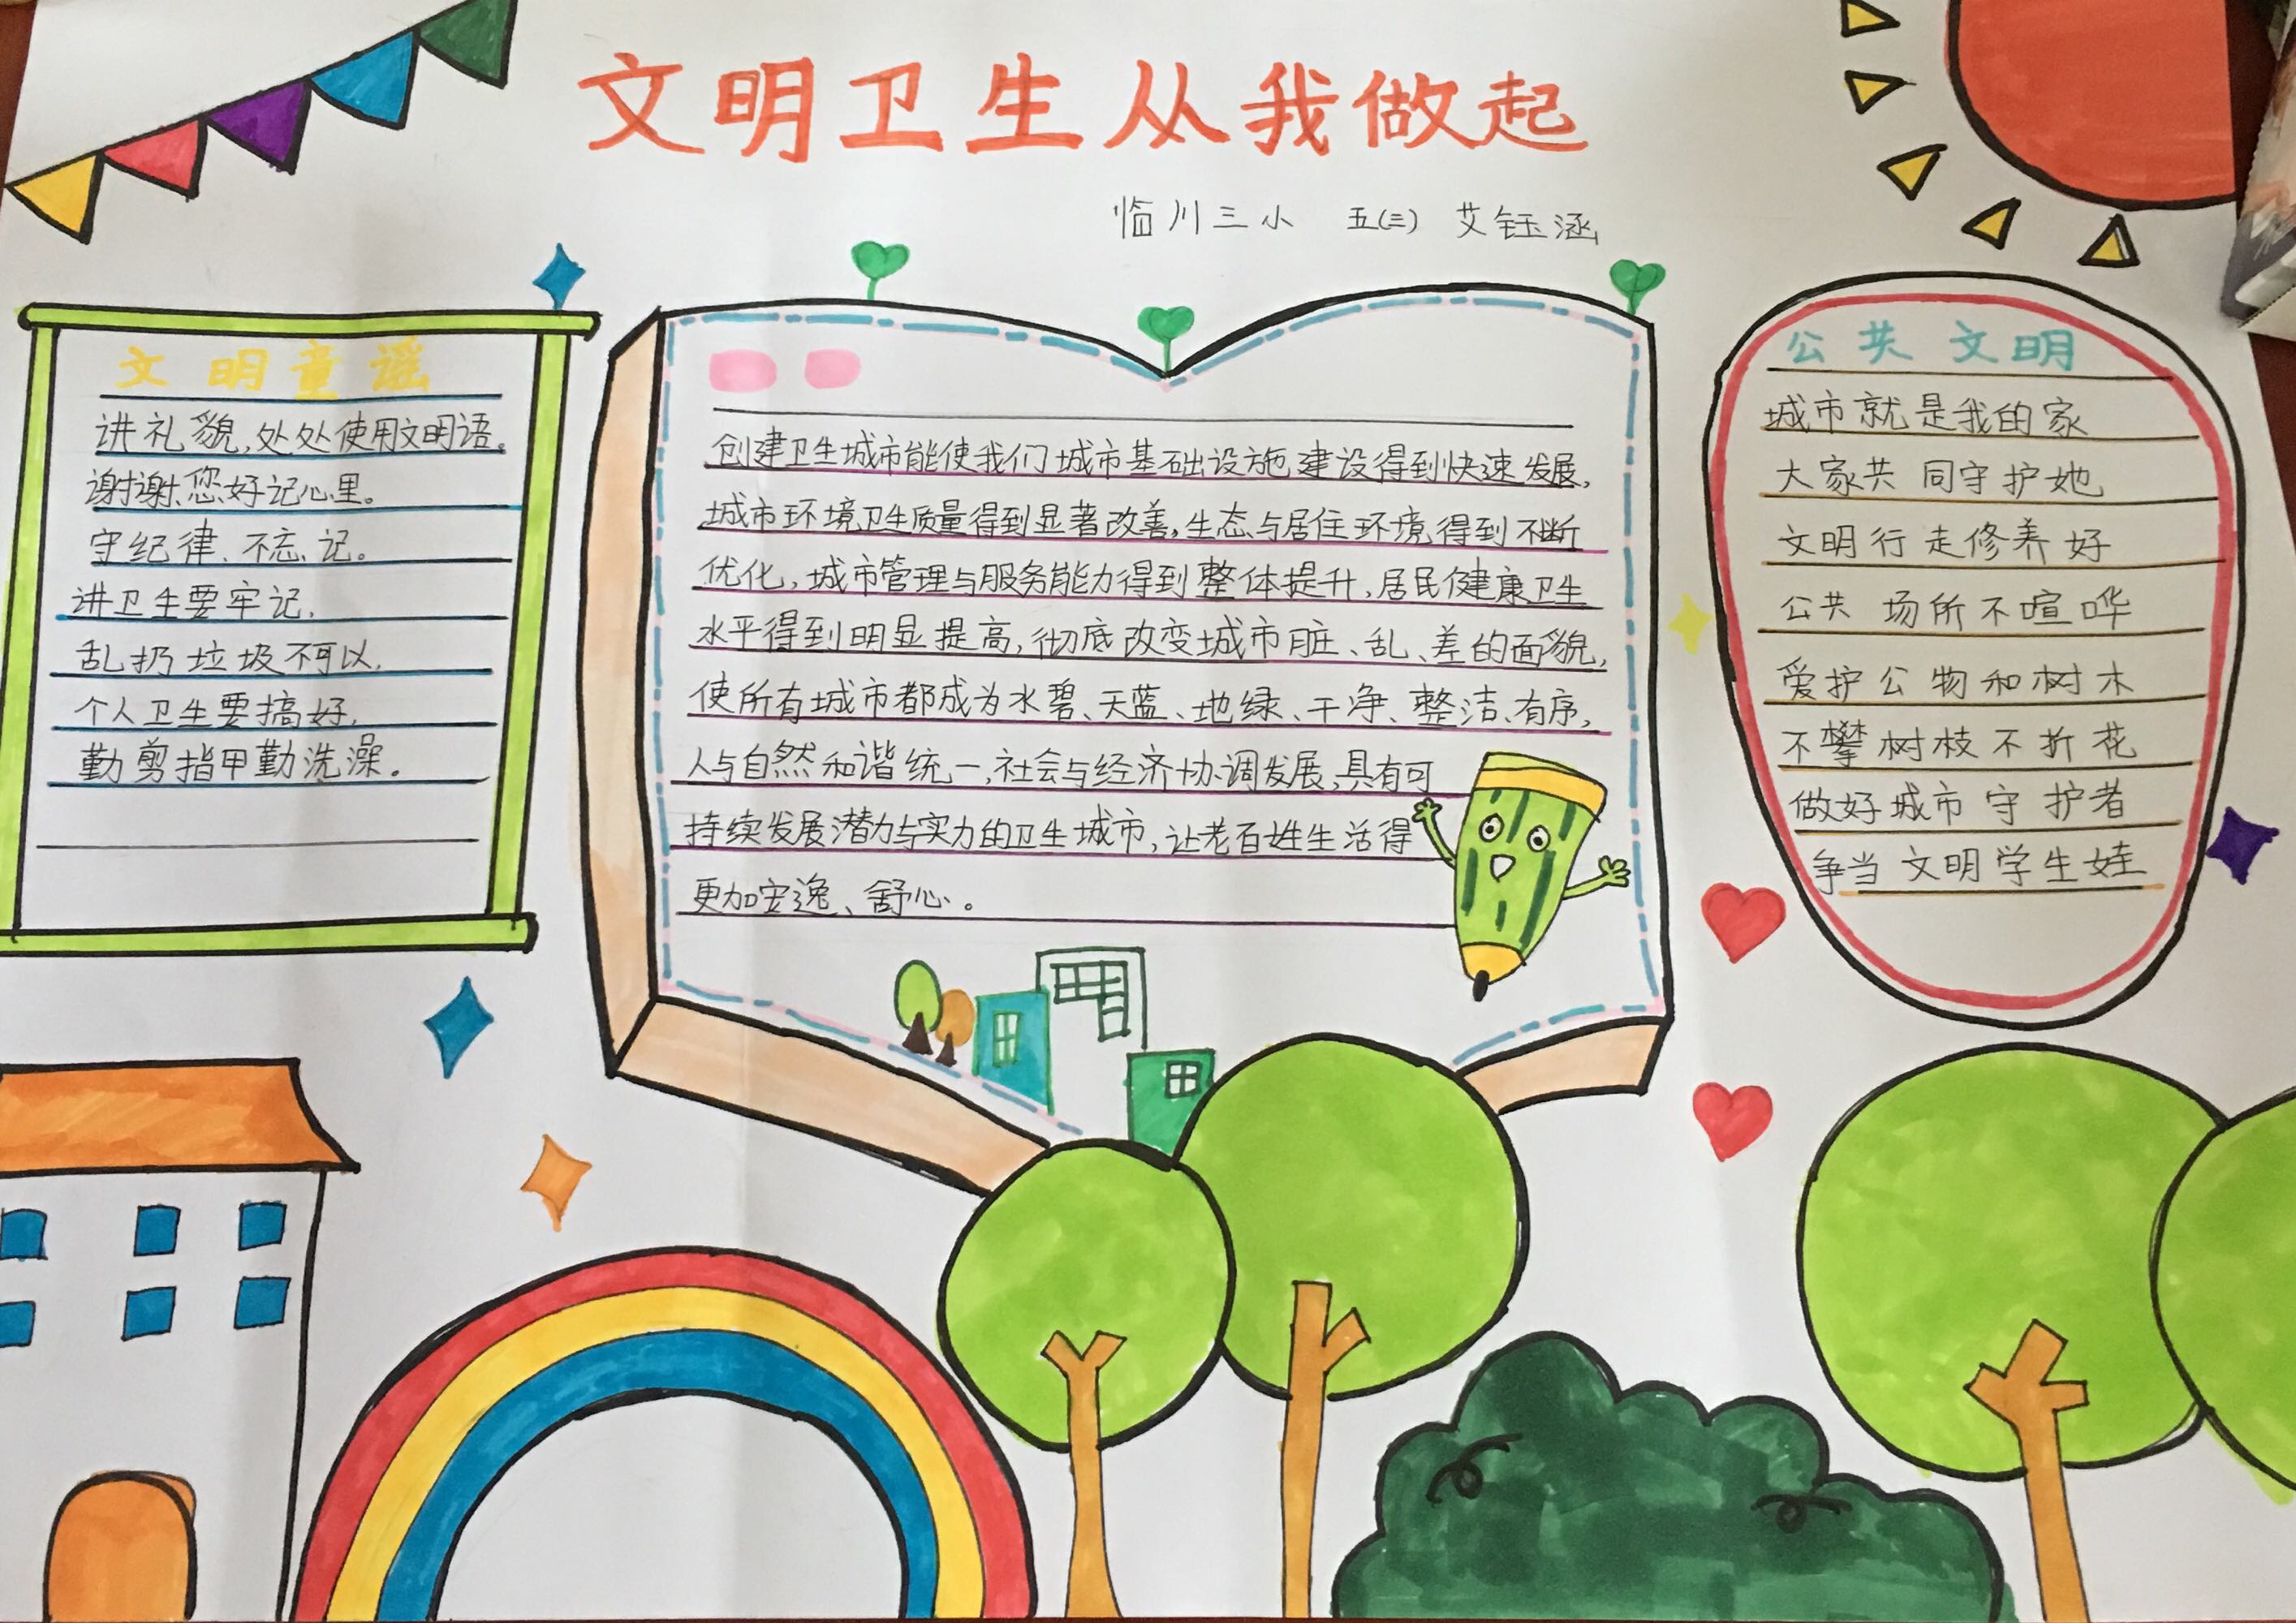 文明卫生从我做起
临川三小 五(三) 艾钰涵
文明童谣
讲礼貌,处处使用文明语。
谢谢、您好记心里。
守纪律、不忘记。
讲卫生要牢记,
乱扔垃圾不可以,
个人卫生要搞好,
勤剪指甲勤洗澡。
创建卫生城市能使我们城市基础设施建设得到快速发展,
城市环境卫生质量得到显著改善,生态与居住环境得到不断
优化,城市管理与服务能力得到整体提升,居民健康卫生
水平得到明显提高,彻底改变城市脏、乱、差的面貌,
使所有城市都成为水碧、天蓝、地绿、干净、整洁、有序,
人与自然和谐统一,社会与经济协调发展,具有可
持续发展潜力与实力的卫生城市,让老百姓生活得
更加安逸、舒心。
公共文明
城市就是我的家
大家共同守护她
文明行走修养好
公共场所不喧哗
爱护公物和树木
不攀树枝不折花
做好城市守护者
争当文明学生娃